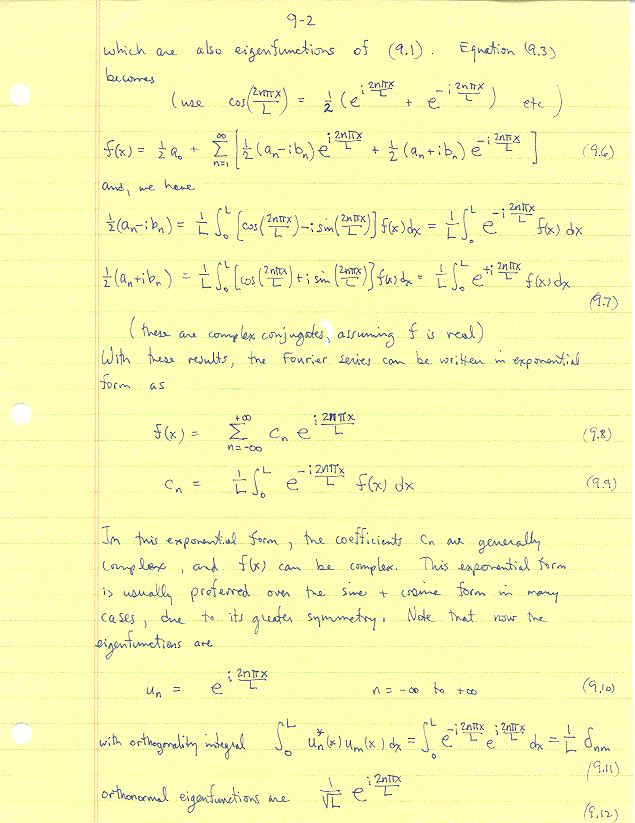 9-2
which are also eigenfunctions of (9.1). Equation (9.3)
becomes
(use cos(2nπx/L) = 1/2 (e^{i 2nπx/L} + e^{-i 2nπx/L}) etc)
f(x) = 1/2 a_0 + Σ_{n=1}^{∞} [1/2 (a_n - ib_n) e^{i 2nπx/L} + 1/2 (a_n + ib_n) e^{-i 2nπx/L}] (9.6)
and, we have
1/2 (a_n - ib_n) = 1/L ∫_0^L [cos(2nπx/L) - i sin(2nπx/L)] f(x) dx = 1/L ∫_0^L e^{-i 2nπx/L} f(x) dx
1/2 (a_n + ib_n) = 1/L ∫_0^L [cos(2nπx/L) + i sin(2nπx/L)] f(x) dx = 1/L ∫_0^L e^{+i 2nπx/L} f(x) dx
(9.7)
(these are complex conjugates, assuming f is real)
With these results, the Fourier series can be written in exponential
form as
f(x) = Σ_{n=-∞}^{+∞} c_n e^{i 2nπx/L} (9.8)
c_n = 1/L ∫_0^L e^{-i 2nπx/L} f(x) dx (9.9)
In this exponential form, the coefficients c_n are generally
complex, and f(x) can be complex. This exponential form
is usually preferred over the sine + cosine form in many
cases, due to its greater symmetry. Note that now the
eigenfunctions are
u_n = e^{i 2nπx/L} n = -∞ to +∞ (9.10)
with orthogonality integral ∫_0^L u_n^*(x) u_m(x) dx = ∫_0^L e^{-i 2nπx/L} e^{i 2nπx/L} dx = 1/L δ_nm
(9.11)
orthonormal eigenfunctions are 1/√L e^{i 2nπx/L}
(9.12)